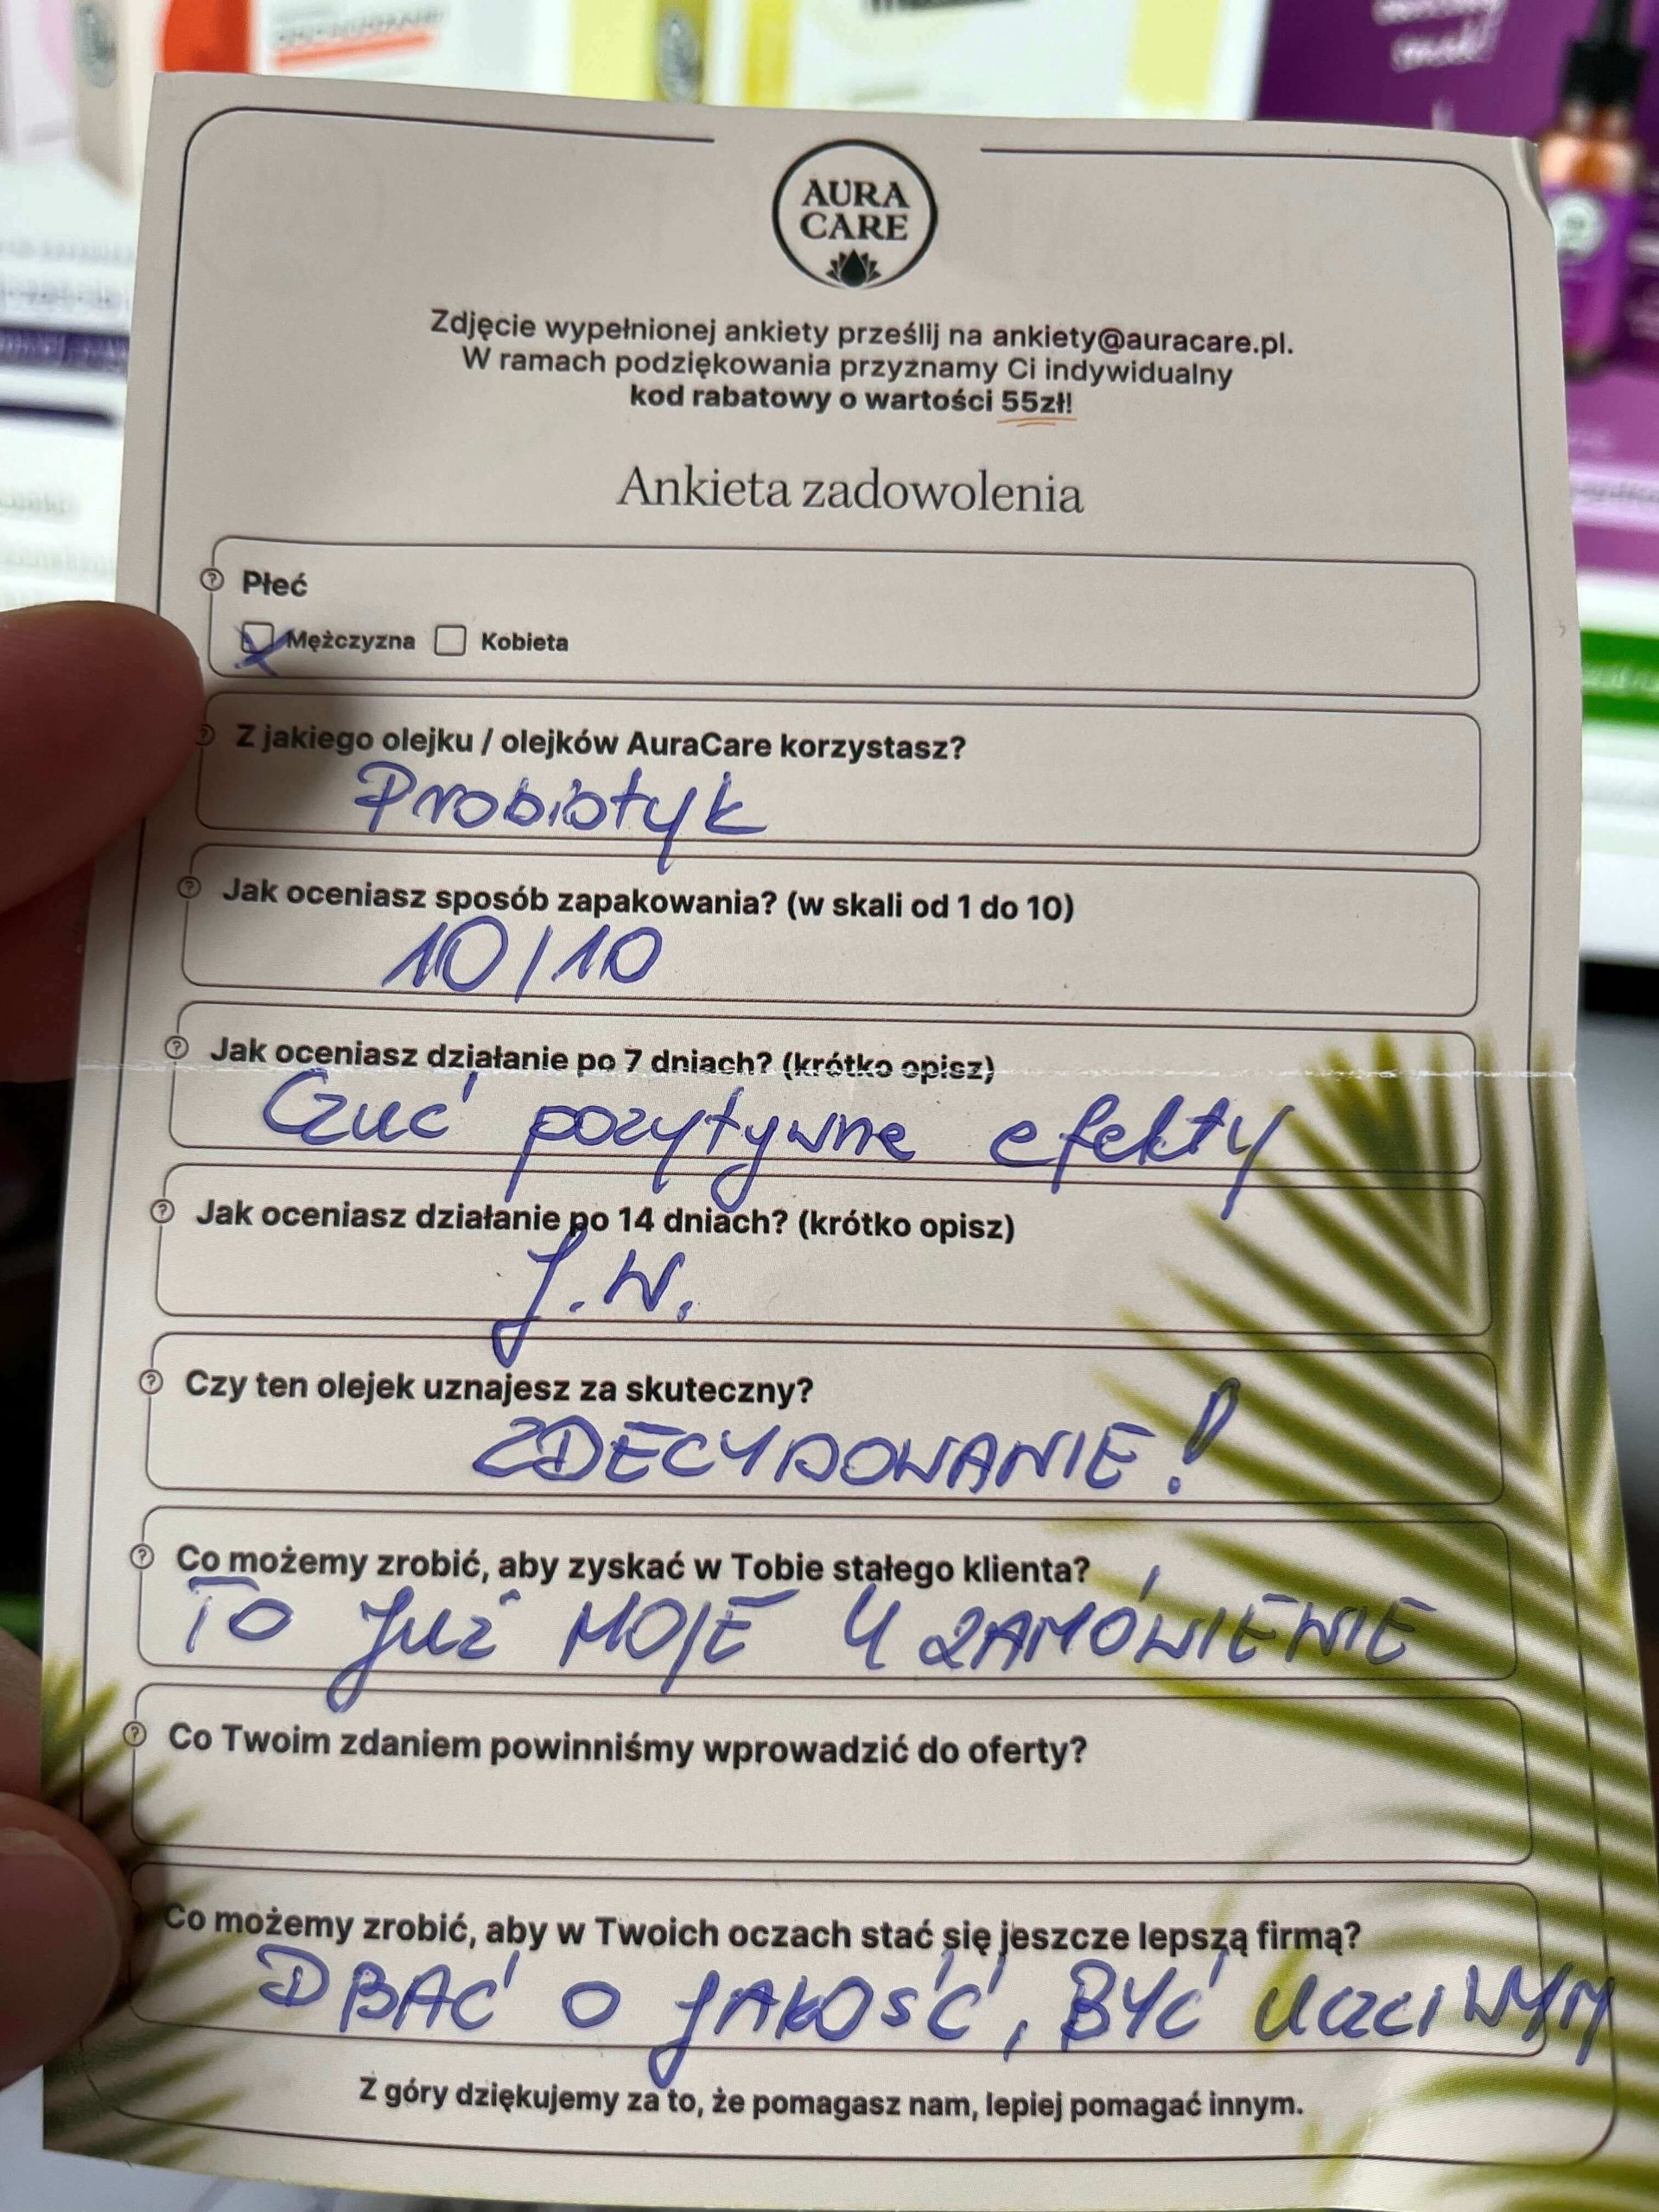 AURA
CARE
Zdjęcie wypełnionej ankiety prześlij na ankiety@auracare.pl.
W ramach podziękowania przyznamy Ci indywidualny
kod rabatowy o wartości 55zł!
Ankieta zadowolenia
Płeć
Mężczyzna Kobieta
Z jakiego olejku / olejków AuraCare korzystasz?
Probiotyk
Jak oceniasz sposób zapakowania? (w skali od 1 do 10)
10/10
Jak oceniasz działanie po 7 dniach? (krótko opisz)
Czuć pozytywne efekty
Jak oceniasz działanie po 14 dniach? (krótko opisz)
J.W.
Czy ten olejek uznajesz za skuteczny?
ZDECYDOWANIE!
Co możemy zrobić, aby zyskać w Tobie stałego klienta?
TO JUŻ MOJE 4 ZAMÓWIENIE
Co Twoim zdaniem powinniśmy wprowadzić do oferty?
Co możemy zrobić, aby w Twoich oczach stać się jeszcze lepszą firmą?
DBAĆ O JAKOŚĆ, BYĆ UCZCIWYM
Z góry dziękujemy za to, że pomagasz nam, lepiej pomagać innym.